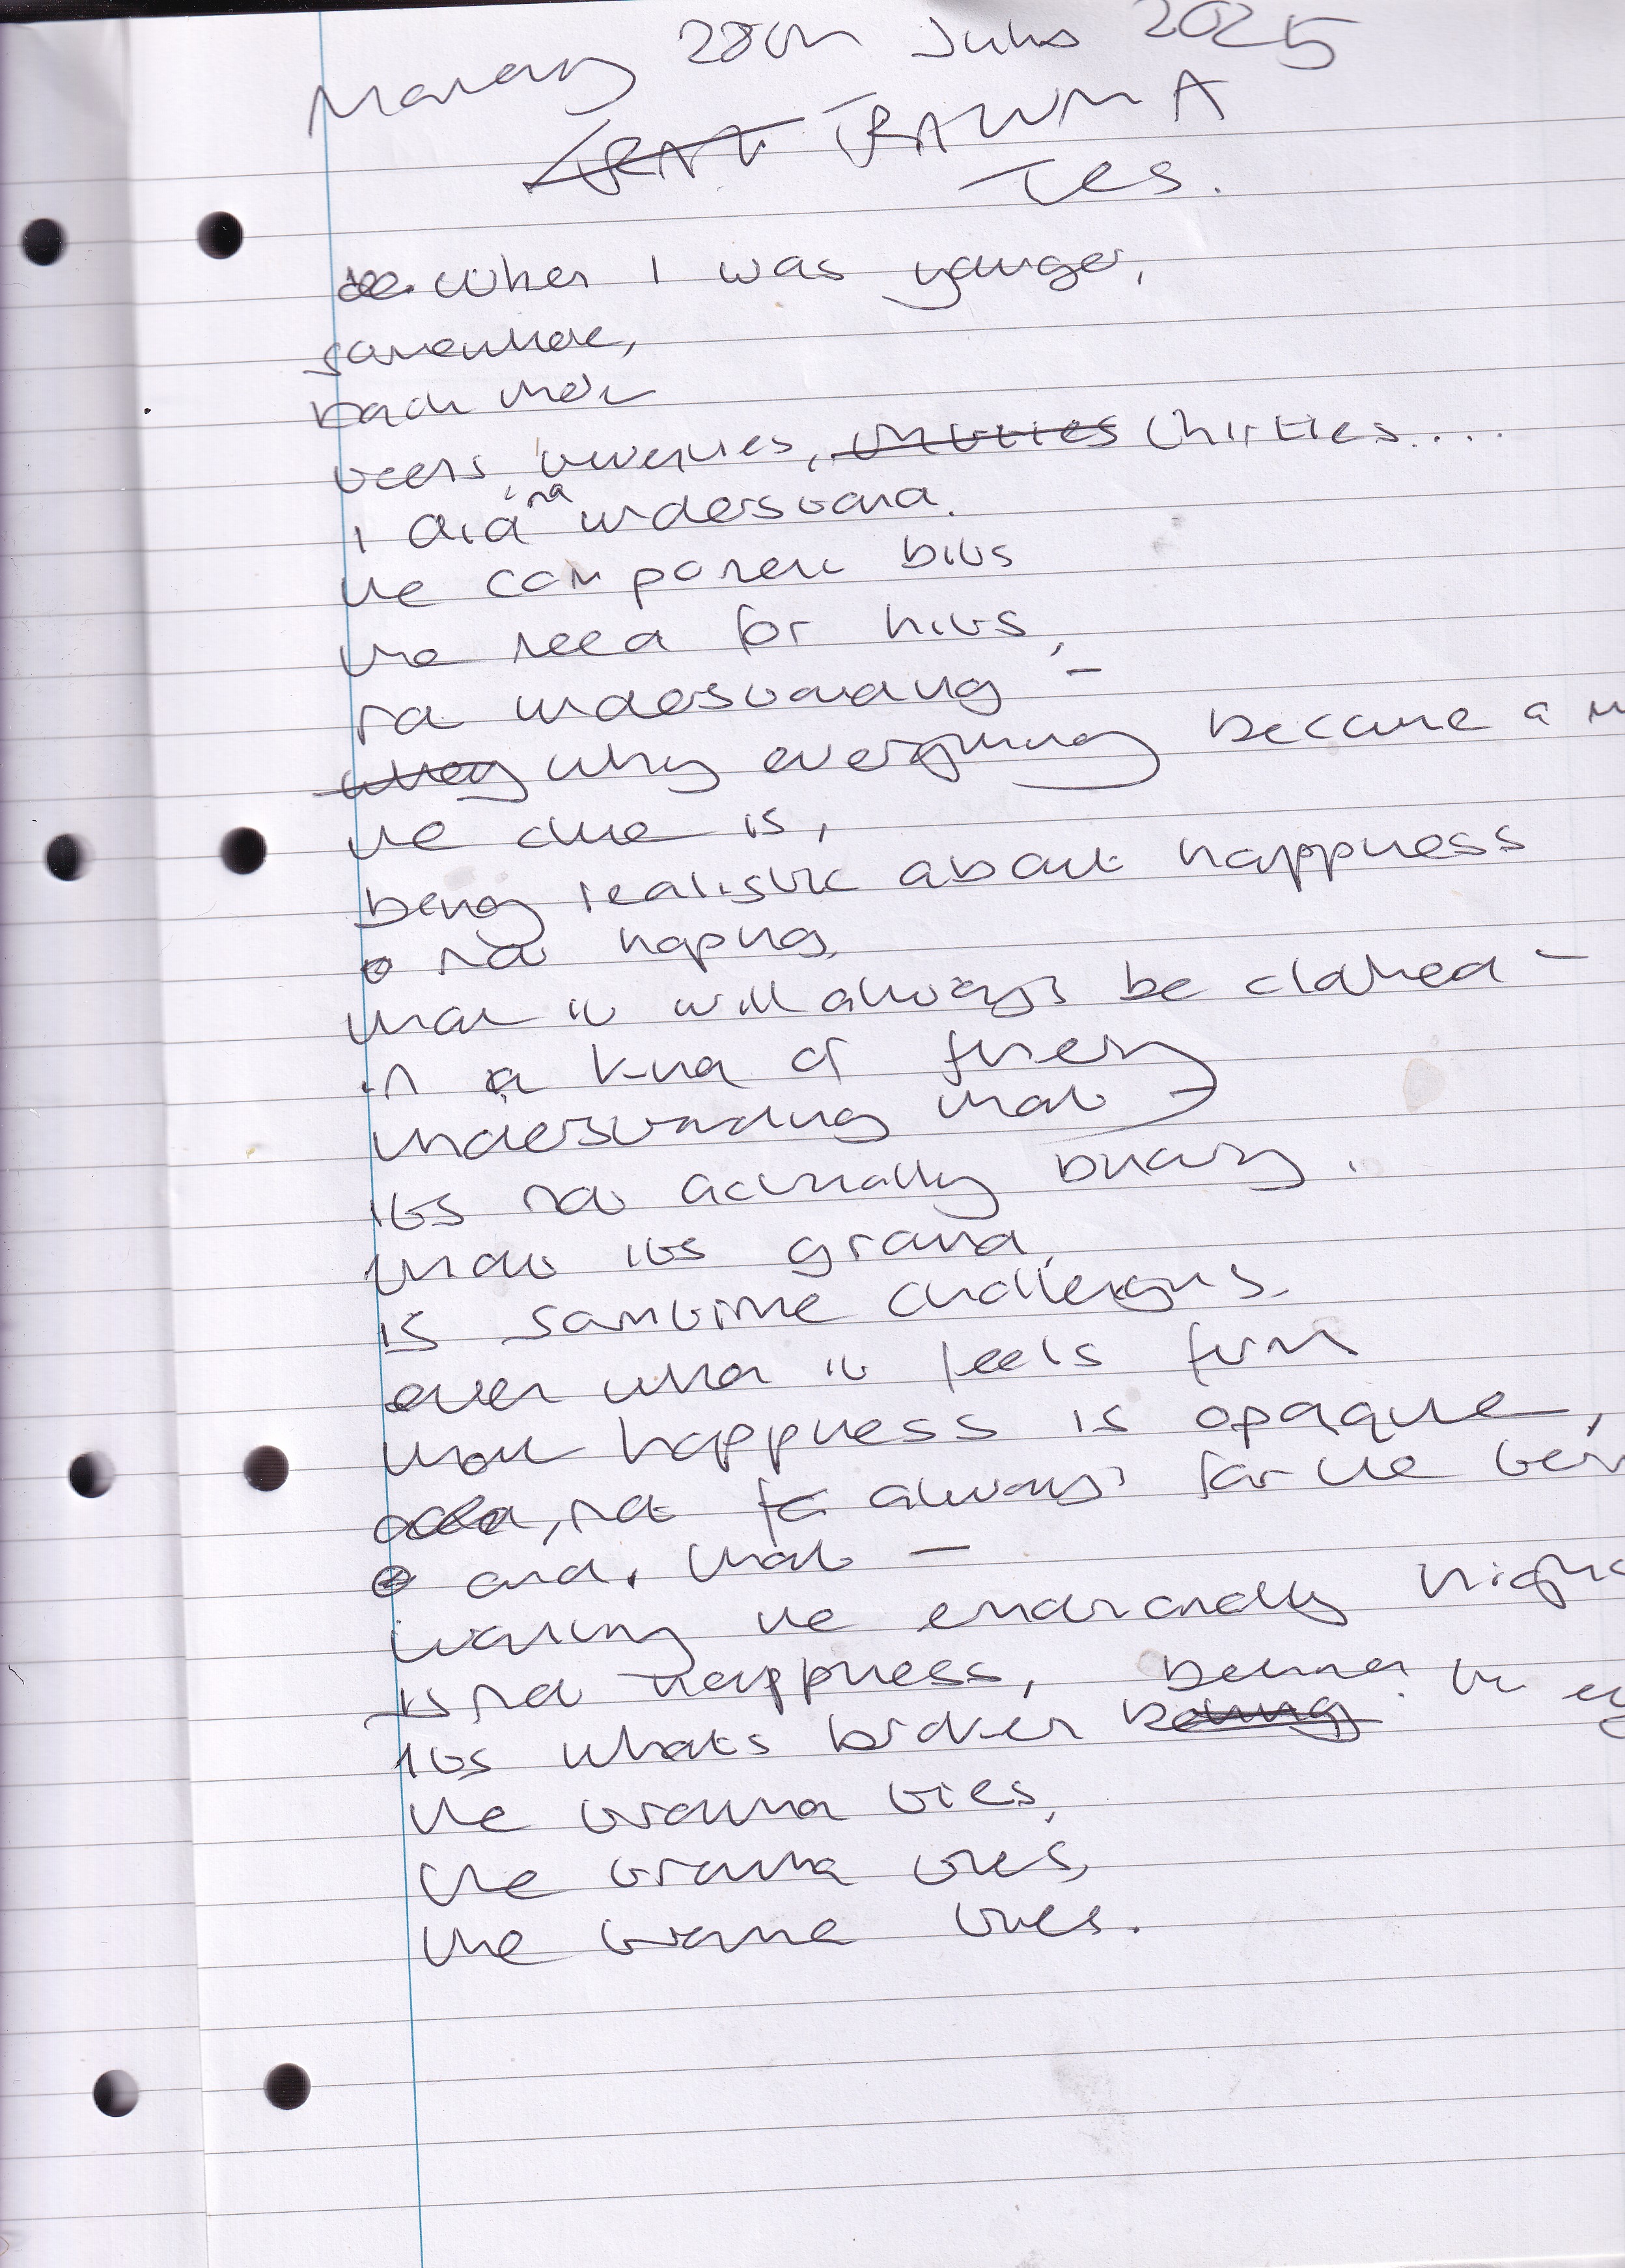 Monday 28th July 2025
TRAUMA
Ties.
When I was younger,
somewhere,
back then
teens, twenties, thirties....
I did not understand.
the component bits
the need for hits,
not understanding -
why everything became a
the clue is,
being realistic about happiness
not hoping,
that it will always be claimed -
in a kind of
understanding that
its not actually binary.
that its grand,
is sometime challenges.
even when it feels firm
that happiness is opaque,
not always for the
and, that -
the emotionally
is not happiness,
its whats broken
the trauma ties,
the trauma ties,
the trauma ties.